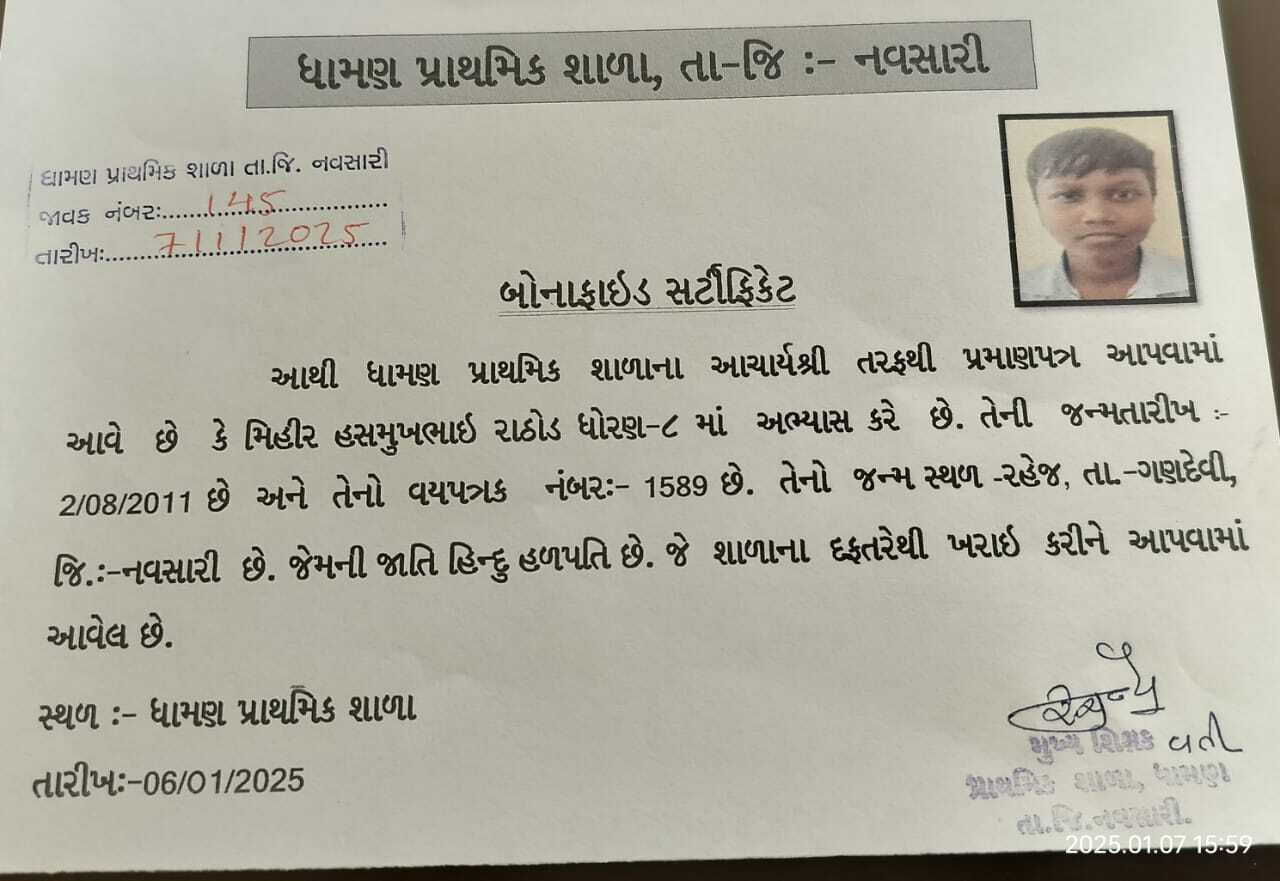 ધામણ પ્રાથમિક શાળા, તા-જિ :- નવસારી
ધામણ પ્રાથમિક શાળા તા.જિ. નવસારી
જાવક નંબરઃ.......145..................
તારીખઃ.........7/1/2025.....
બોનાફાઇડ સર્ટીફિકેટ
આથી ધામણ પ્રાથમિક શાળાના આચાર્યશ્રી તરફથી પ્રમાણપત્ર આપવામાં
આવે છે કે મિહીર હસમુખભાઇ રાઠોડ ધોરણ-૮ માં અભ્યાસ કરે છે. તેની જન્મતારીખ :-
2/08/2011 છે અને તેનો વયપત્રક નંબરઃ- 1589 છે. તેનો જન્મ સ્થળ -રહેજ, તા.-ગણદેવી,
જિ.ઃ-નવસારી છે. જેમની જાતિ હિન્દુ હળપતિ છે. જે શાળાના દફતરેથી ખરાઇ કરીને આપવામાં
આવેલ છે.
સ્થળ :- ધામણ પ્રાથમિક શાળા
તારીખઃ-06/01/2025
મુખ્ય શિક્ષક વતી
પ્રાથમિક શાળા, ધામણ
તા.જિ.નવસારી.
2025.01.07 15:59